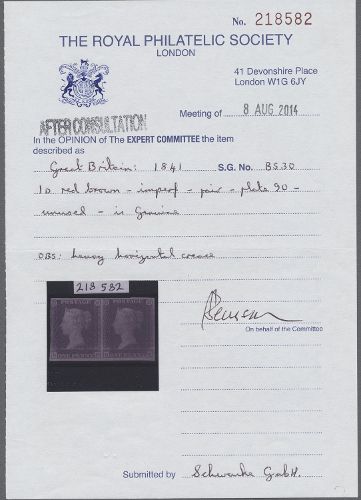 No. 218582
THE ROYAL PHILATELIC SOCIETY
LONDON
41 Devonshire Place
London W1G 6JY
Meeting of 8 AUG 2014
AFTER CONSULTATION
In the OPINION of The EXPERT COMMITTEE the item
described as
Great Britain: 1841 S.G. No. BS30
1D red brown - imperf - pair - plate 90 -
unused - is Genuine
OBS: heavy horizontal crease
218 582
POSTAGE POSTAGE
ONE PENNY ONE PENNY
On behalf of the Committee
Submitted by Schwanke GmbH.